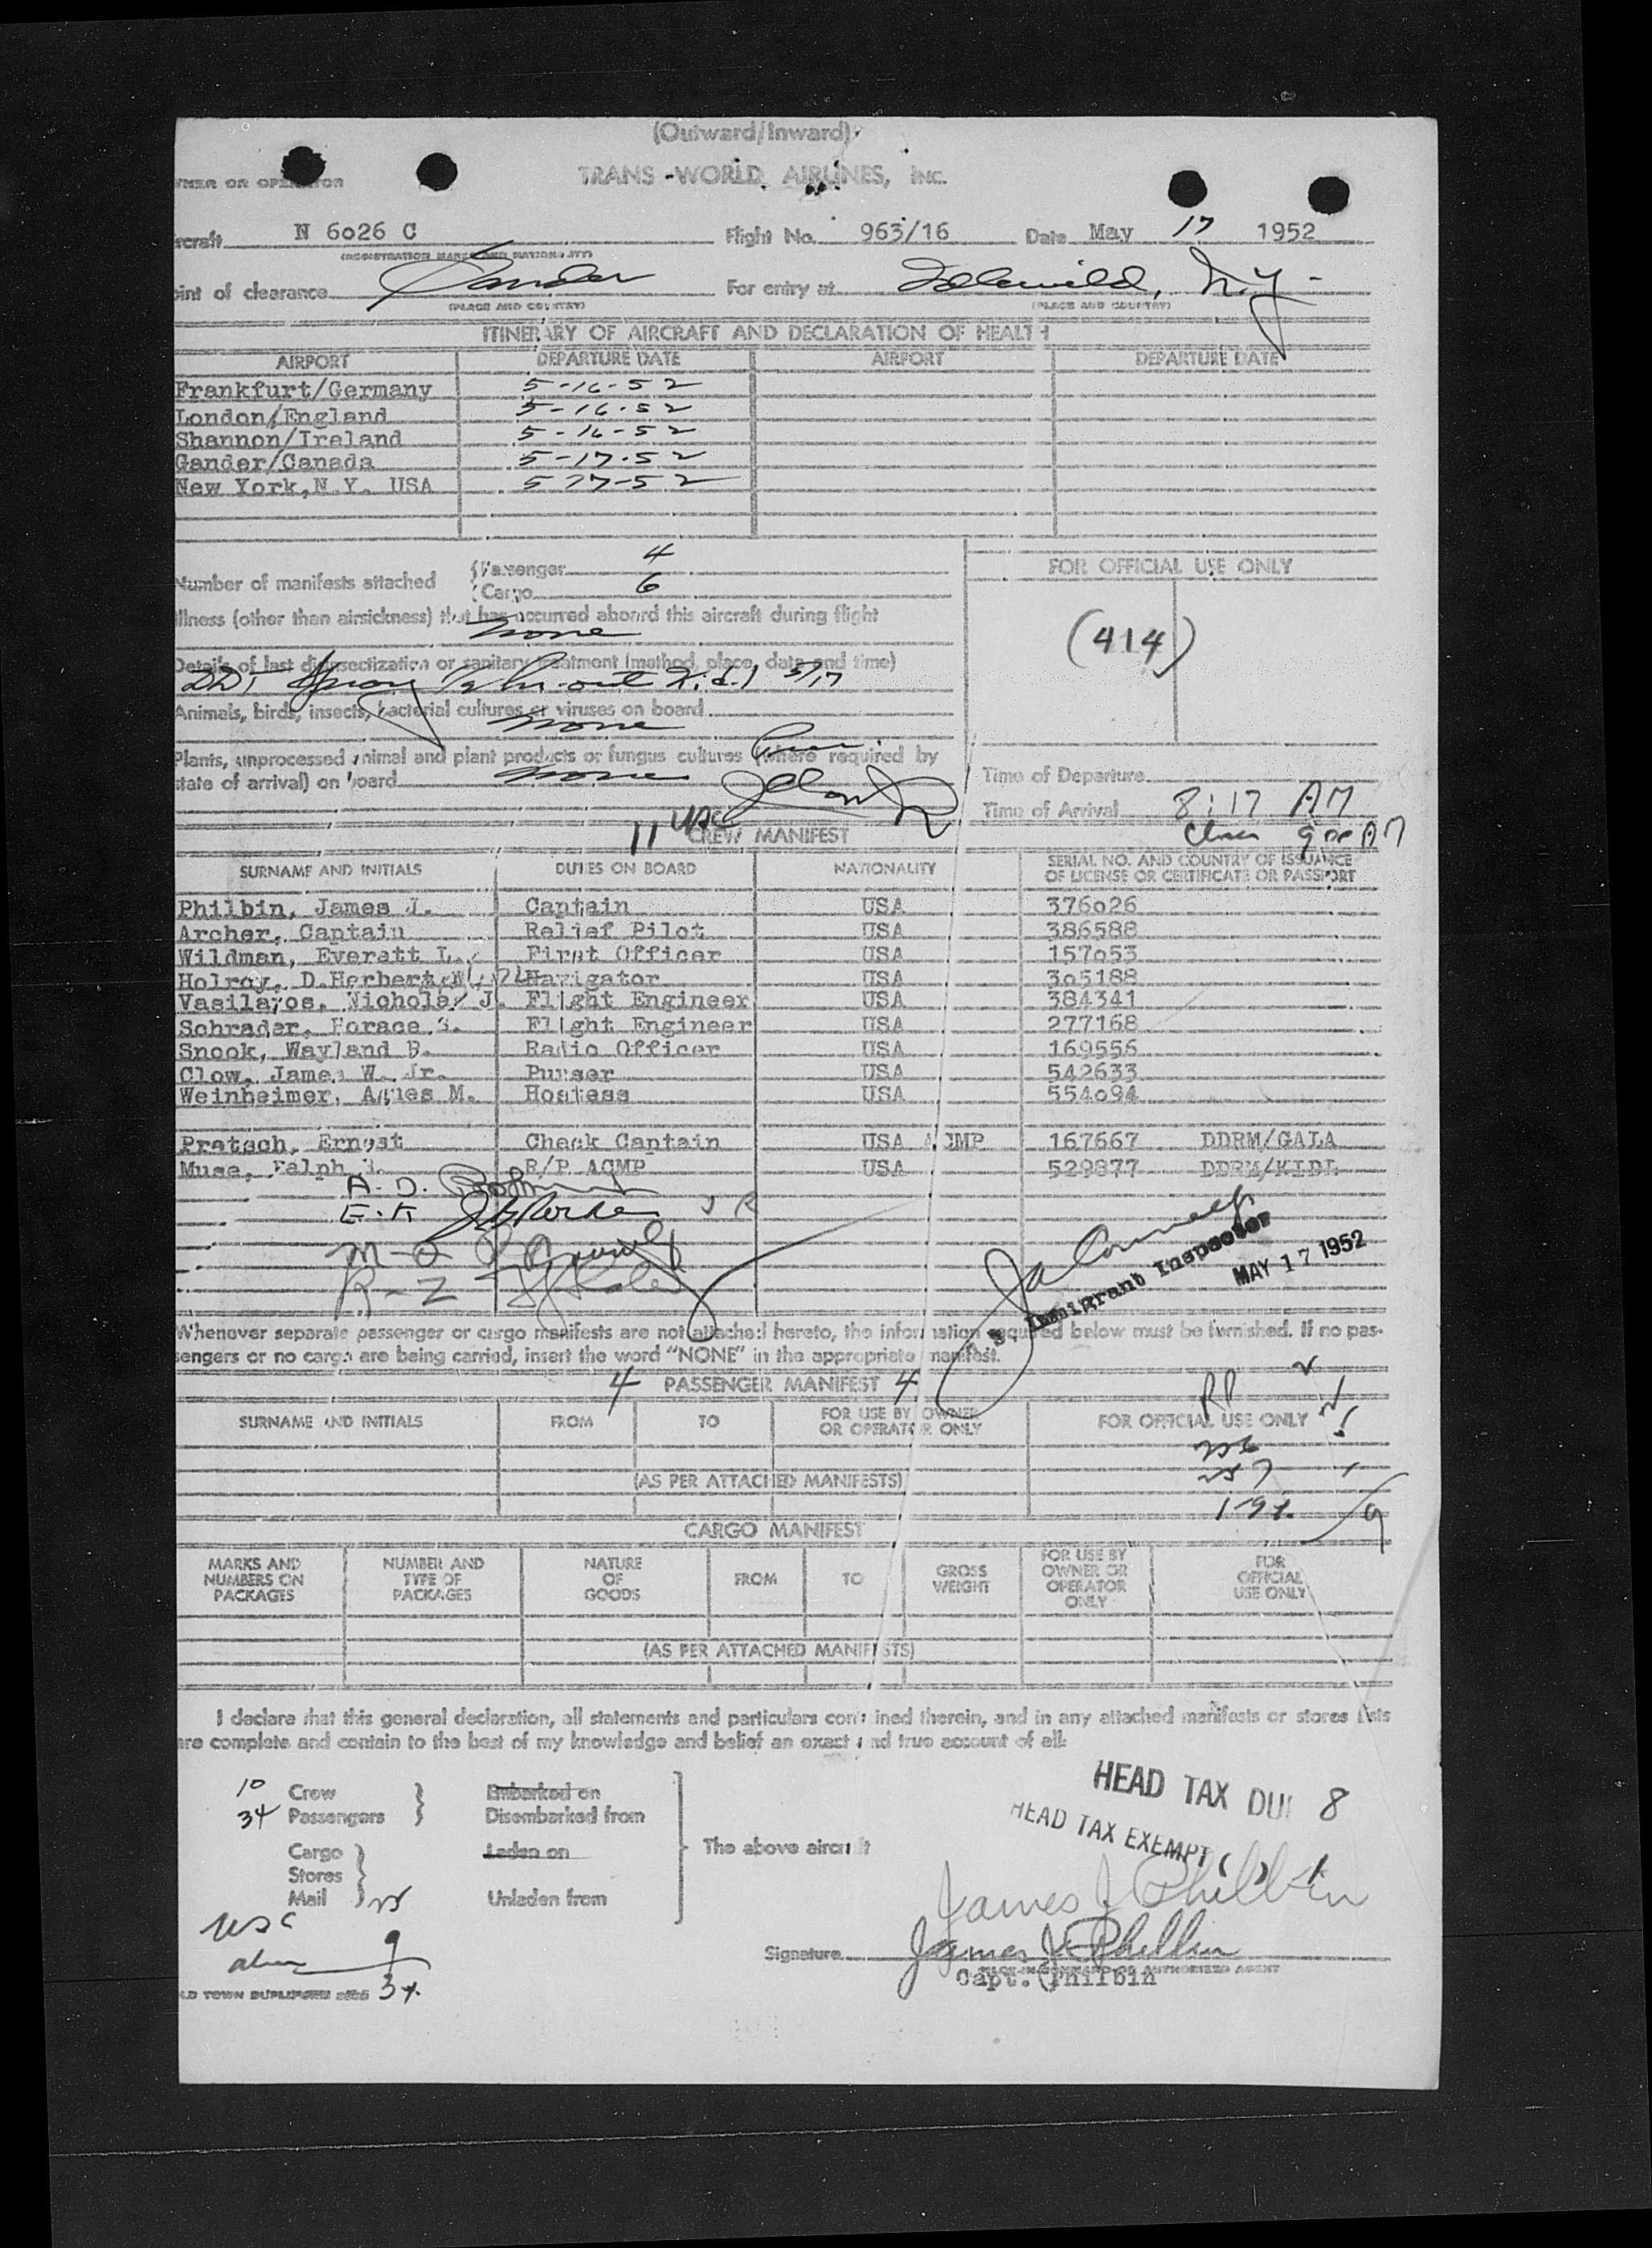 (Outward/Inward)
TRANS WORLD AIRLINES, INC.
N 6026 C Flight No. 963/16 Date May 17 1952
(REGISTRATION MARKS AND NATIONALITY)
of clearance Gander For entry at Idlewild, N.Y.
(PLACE AND COUNTRY) (PLACE AND COUNTRY)
ITINERARY OF AIRCRAFT AND DECLARATION OF HEALTH
AIRPORT DEPARTURE DATE AIRPORT DEPARTURE DATE
Frankfurt/Germany 5-16-52
London/England 5-16-52
Shannon/Ireland 5-16-52
Gander/Canada 5-17-52
New York, N.Y. USA 5 17-52
Number of manifests attached { Passenger 4
{ Cargo 6
FOR OFFICIAL USE ONLY
Illness (other than airsickness) that has occurred aboard this aircraft during flight
none
(414)
Details of last disinsectization or sanitary treatment (method, place, date and time)
DDT Spray 5/17
Animals, birds, insects, bacterial cultures or viruses on board
none
Plants, unprocessed animal and plant products or fungus cultures (where required by
state of arrival) on board none
Time of Departure
Time of Arrival 8:17 AM
11 USC
CREW MANIFEST
SURNAME AND INITIALS DUTIES ON BOARD NATIONALITY SERIAL NO. AND COUNTRY OF ISSUANCE
OF LICENSE OR CERTIFICATE OR PASSPORT
Philbin, James J. Captain USA 376026
Archer, Captain Relief Pilot USA 386588
Wildman, Everett L. First Officer USA 157053
Holroy, D. Herbert Navigator USA 305188
Vasilayos, Nicholas J. Flight Engineer USA 384341
Schrader, Horace Flight Engineer USA 277168
Snook, Wayland B. Radio Officer USA 169556
Clow, James W. Jr. Purser USA 542633
Weinheimer, Agnes M. Hostess USA 554094
Pratsch, Ernest Check Captain USA ACMP 167667 DDRM/GALA
Muse, Ralph R/P ACMP USA 529877 DDRM/KIDL
A-D.
E-K
M-Q
R-Z
Immigrant Inspector
MAY 17 1952
Whenever separate passenger or cargo manifests are not attached hereto, the information required below must be furnished. If no pas-
sengers or no cargo are being carried, insert the word "NONE" in the appropriate manifest.
4 PASSENGER MANIFEST 4
SURNAME AND INITIALS FROM TO FOR USE BY OWNER
OR OPERATOR ONLY FOR OFFICIAL USE ONLY
(AS PER ATTACHED MANIFESTS)
CARGO MANIFEST
MARKS AND
NUMBERS ON
PACKAGES NUMBER AND
TYPE OF
PACKAGES NATURE
OF
GOODS FROM TO GROSS
WEIGHT FOR USE BY
OWNER OR
OPERATOR
ONLY FOR
OFFICIAL
USE ONLY
(AS PER ATTACHED MANIFESTS)
I declare that this general declaration, all statements and particulars contained therein, and in any attached manifests or stores lists
are complete and contain to the best of my knowledge and belief an exact and true account of all:
10 Crew } Embarked on
34 Passengers } Disembarked from
Cargo } Laden on The above aircraft
Stores
Mail } Unladen from
HEAD TAX DUE 8
HEAD TAX EXEMPT
James J Philbin
USC
Signature James J Philbin
PILOT-IN-COMMAND OR AUTHORIZED AGENT
Capt. Philbin
alien 9
34